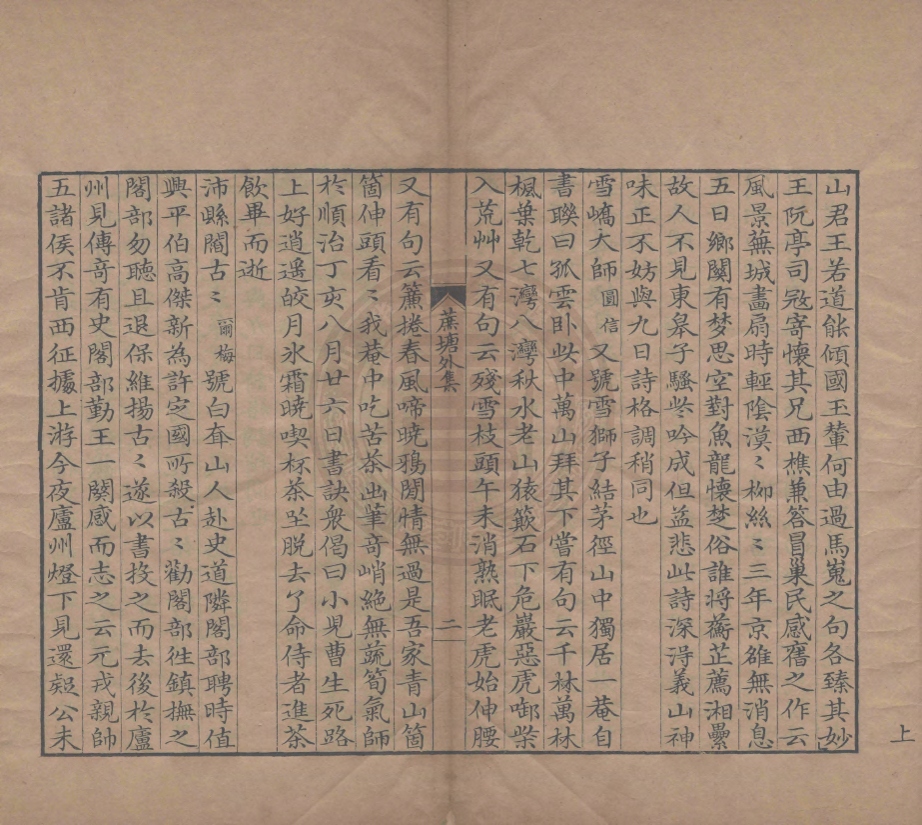 山君王若道能傾國玉輦何由過馬嵬之句各臻其妙
王阮亭司寇寄懷其兄西樵兼答冒巢民感舊之作云
風景蕪城畫扇時輕陰漠〻柳絲〻三年京雒無消息
五日鄉關有梦思空對魚龍懷楚俗誰將蘅芷薦湘纍
故人不見東皋子騷些吟成但益悲此詩深淂義山神
味正不妨與九日詩格調稍同也
雪嶠大師圓信又號雪獅子結茅徑山中獨居一菴自
書聯曰孤雲臥此中萬山拜其下嘗有句云千林萬林
楓葉乾七灣八灣秋水老山猿簸石下危巖惡虎啣柴
入荒艸又有句云殘雪枝頭午未消熟眠老虎始伸腰
蕉塘外集
二
又有句云簾捲春風啼曉鴉閒情無過是吾家青山箇
箇伸頭看〻我菴中吃苦茶出筆奇峭絕無蔬筍氣師
於順治丁亥八月廿六日書訣衆偈曰小兒曹生死路
上好逍遥皎月氷霜曉喫杯茶坐脫去了命侍者進茶
飲畢而逝
沛縣閻古〻爾梅號白耷山人赴史道隣閣部聘時值
興平伯高傑新為許定國所殺古〻勸閣部徃鎮撫之
閣部勿聽且退保維揚古〻遂以書投之而去後於廬
州見傳奇有史閣部勤王一闋感而志之云元戎親帥
五諸侯不肯西征據上游今夜廬州燈下見還疑公未
上